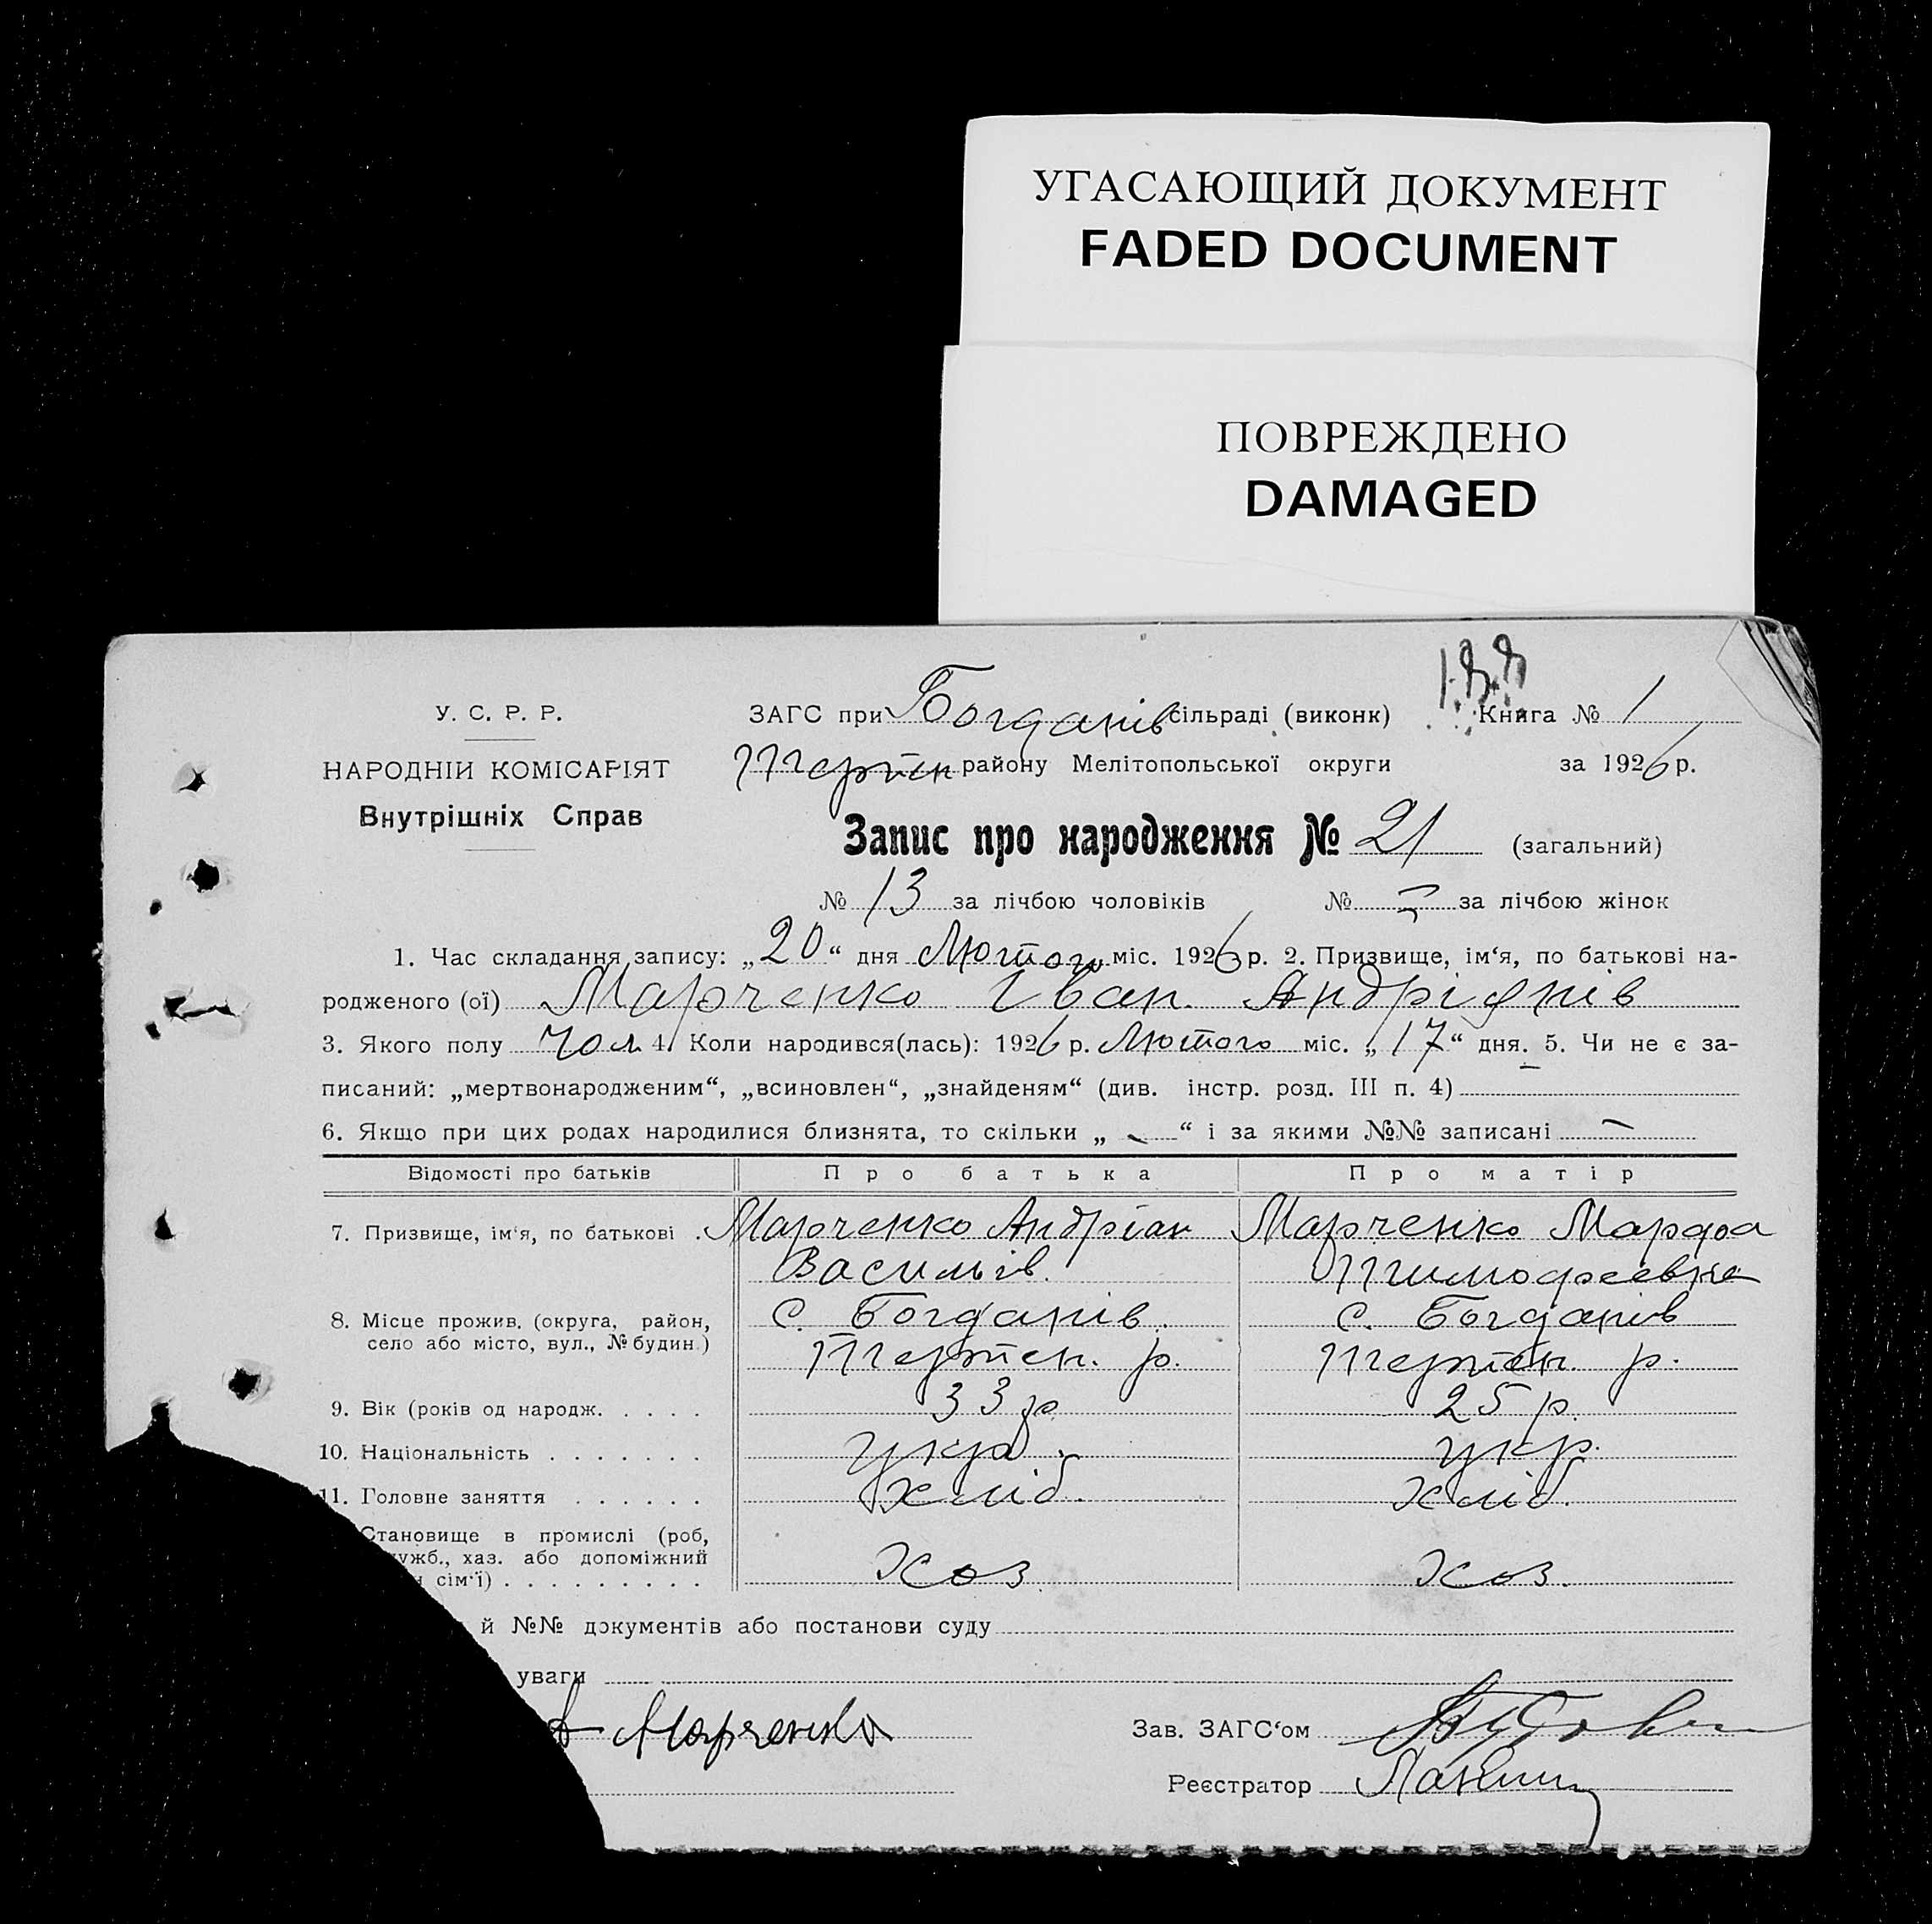 УГАСАЮЩИЙ ДОКУМЕНТ
FADED DOCUMENT
ПОВРЕЖДЕНО
DAMAGED
У. С. Р. Р.
НАРОДНІЙ КОМІСАРІЯТ
Внутрішніх Справ
ЗАГС при Богданів сільраді (виконк)
Книга № 1
Терпен району Мелітопольської округи
за 1926 р.
Запис про народження № 21 (загальний)
№ 13 за лічбою чоловіків № — за лічбою жінок
1. Час складання запису: „20“ дня Лютого міс. 1926 р. 2. Призвище, ім‘я, по батькові на-
родженого (ої) Марченко Іван Андріянів
3. Якого полу чол 4. Коли народився(лась): 1926 р. Лютого міс. „17“ дня. 5. Чи не є за-
писаний: „мертвонародженим“, „всиновлен“, „знайденям“ (див. інстр. розд. III п. 4)
6. Якщо при цих родах народилися близнята, то скільки „ — “ і за якими №№ записані —
Відомості про батьків Про батька Про матір
7. Призвище, ім‘я, по батькові . Марченко Андріан Марченко Марфа
Васильів. Тимофеевна
8. Місце прожив. (округа, район, с. Богданів. с. Богданів
село або місто, вул., № будин.) Терпен. р. Терпен. р.
9. Вік (років од народж. . . . . 33 р 25 р.
10. Національність . . . . . . . укр. укр.
11. Головне заняття . . . . . . хліб. хліб.
Становище в промислі (роб,
ужб., хаз. або допоміжний
сім‘ї) . . . . . . . . . Хоз Хоз.
й №№ документів або постанови суду
уваги
Марченко
Зав. ЗАГС‘ом
Реєстратор